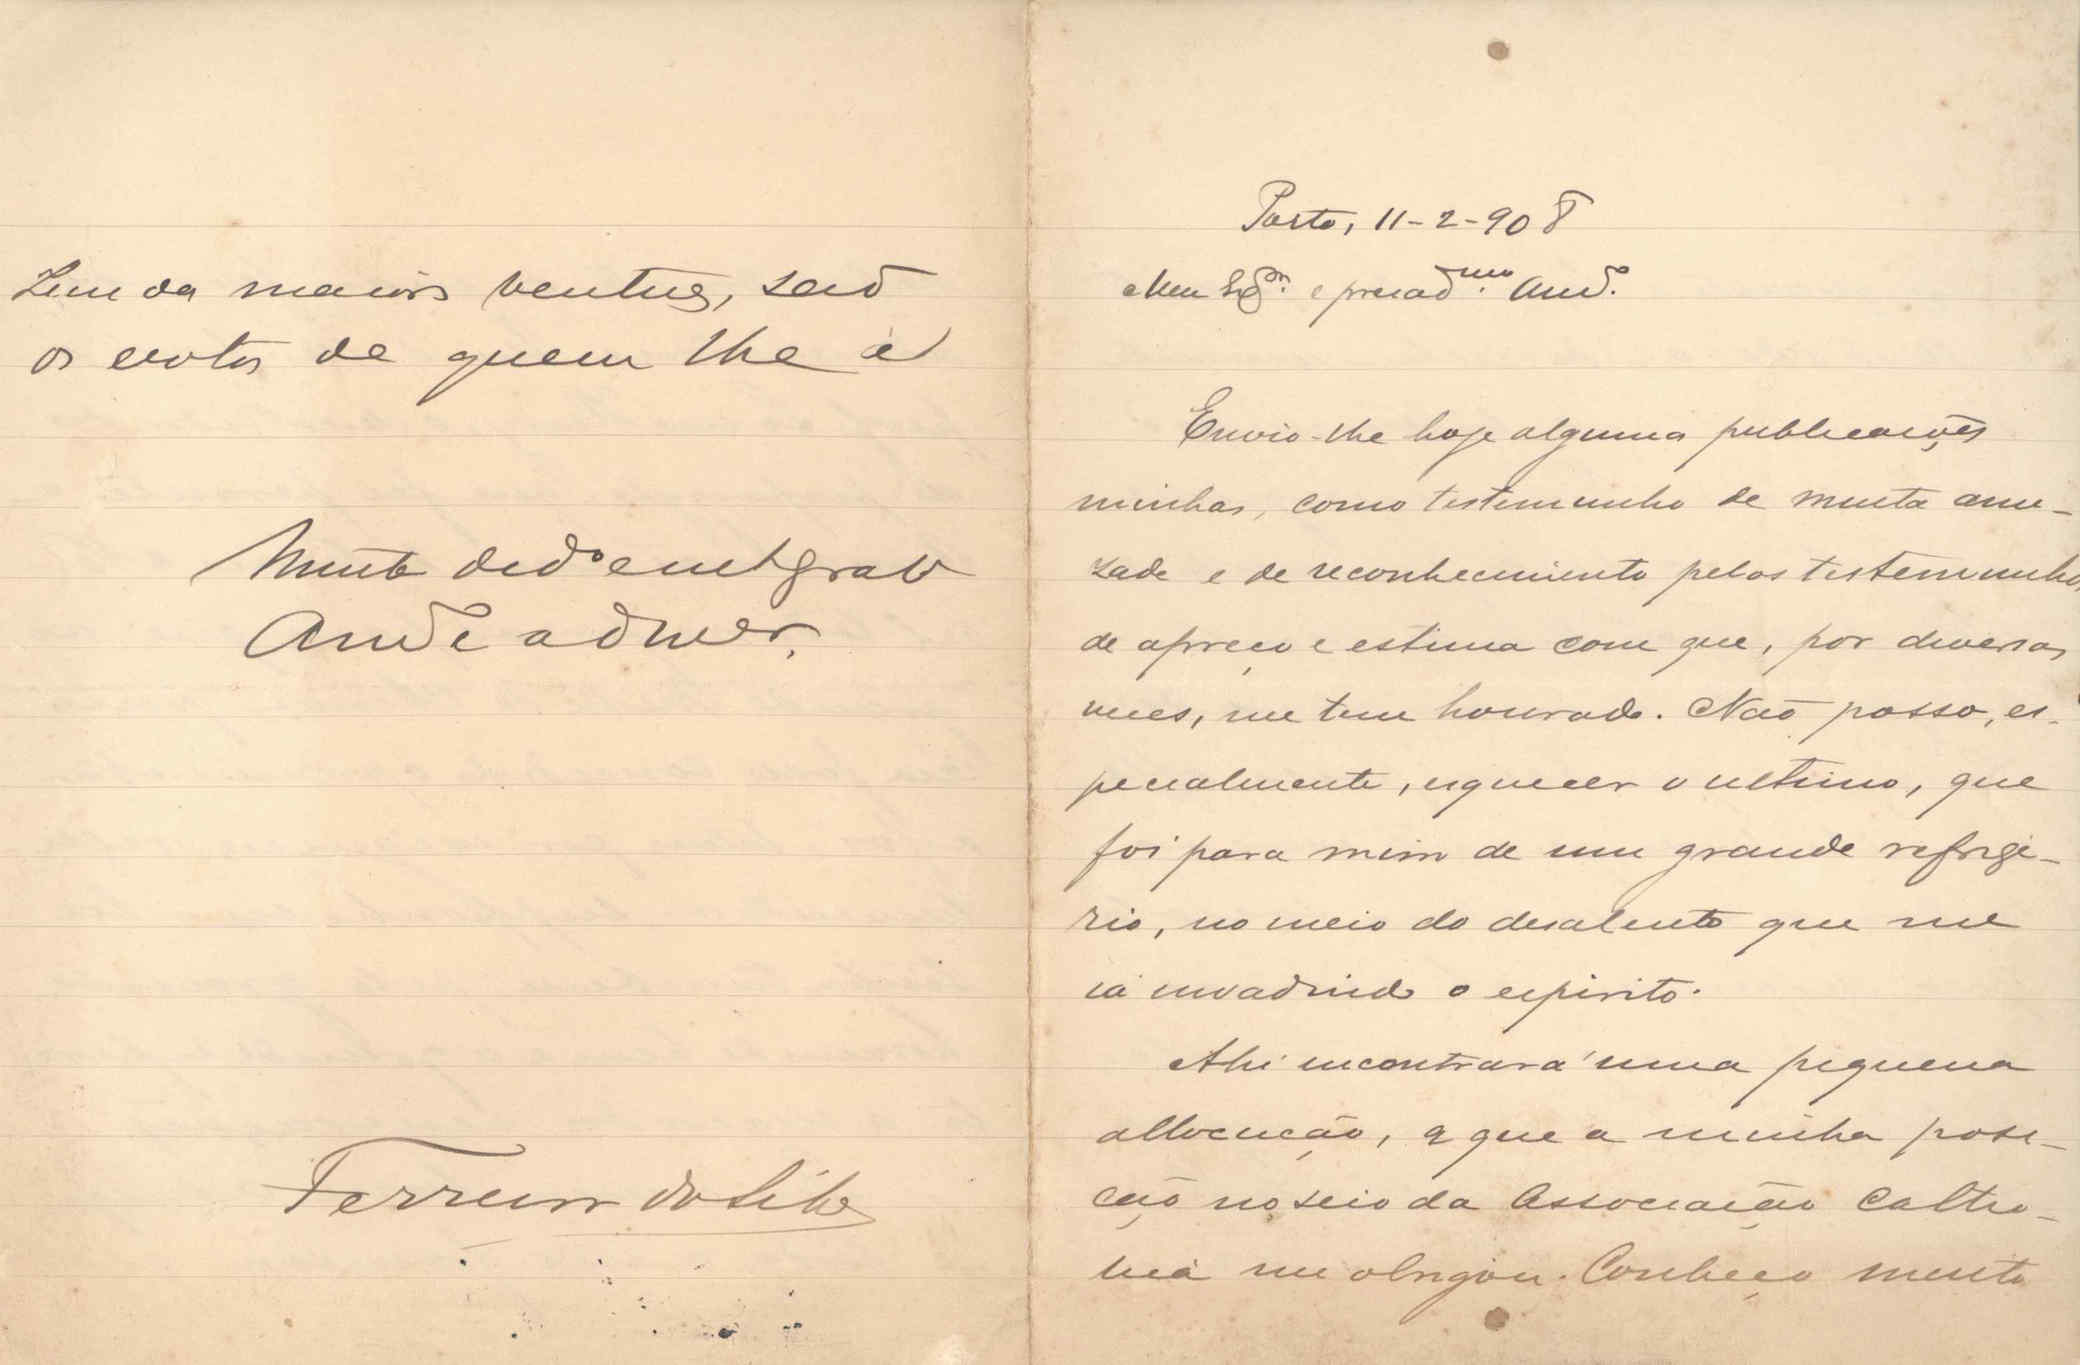 Porto, 11-2-908
Meu Sr. e presadmo. Amº.
Envio-lhe hoje algumas publicações
minhas, como testemunho de muita ami-
zade e de reconhecimento pelos testemunhos
de apreço e estima com que, por diversas
vezes, me tem honrado. Não posso, es-
pecialmente, esquecer o ultimo, que
foi para mim de um grande refrige-
rio, no meio do desalento que me
ia invadindo o espirito.
Ahi encontrará uma pequena
allocução, a que a minha posi-
ção no seio da Associação Catho-
lica me obrigou. Conheço muito
maiores venturas, são
os votos de quem lhe é
Muito dedº e mtº grato
Amº e admor.
Ferreira da Silva